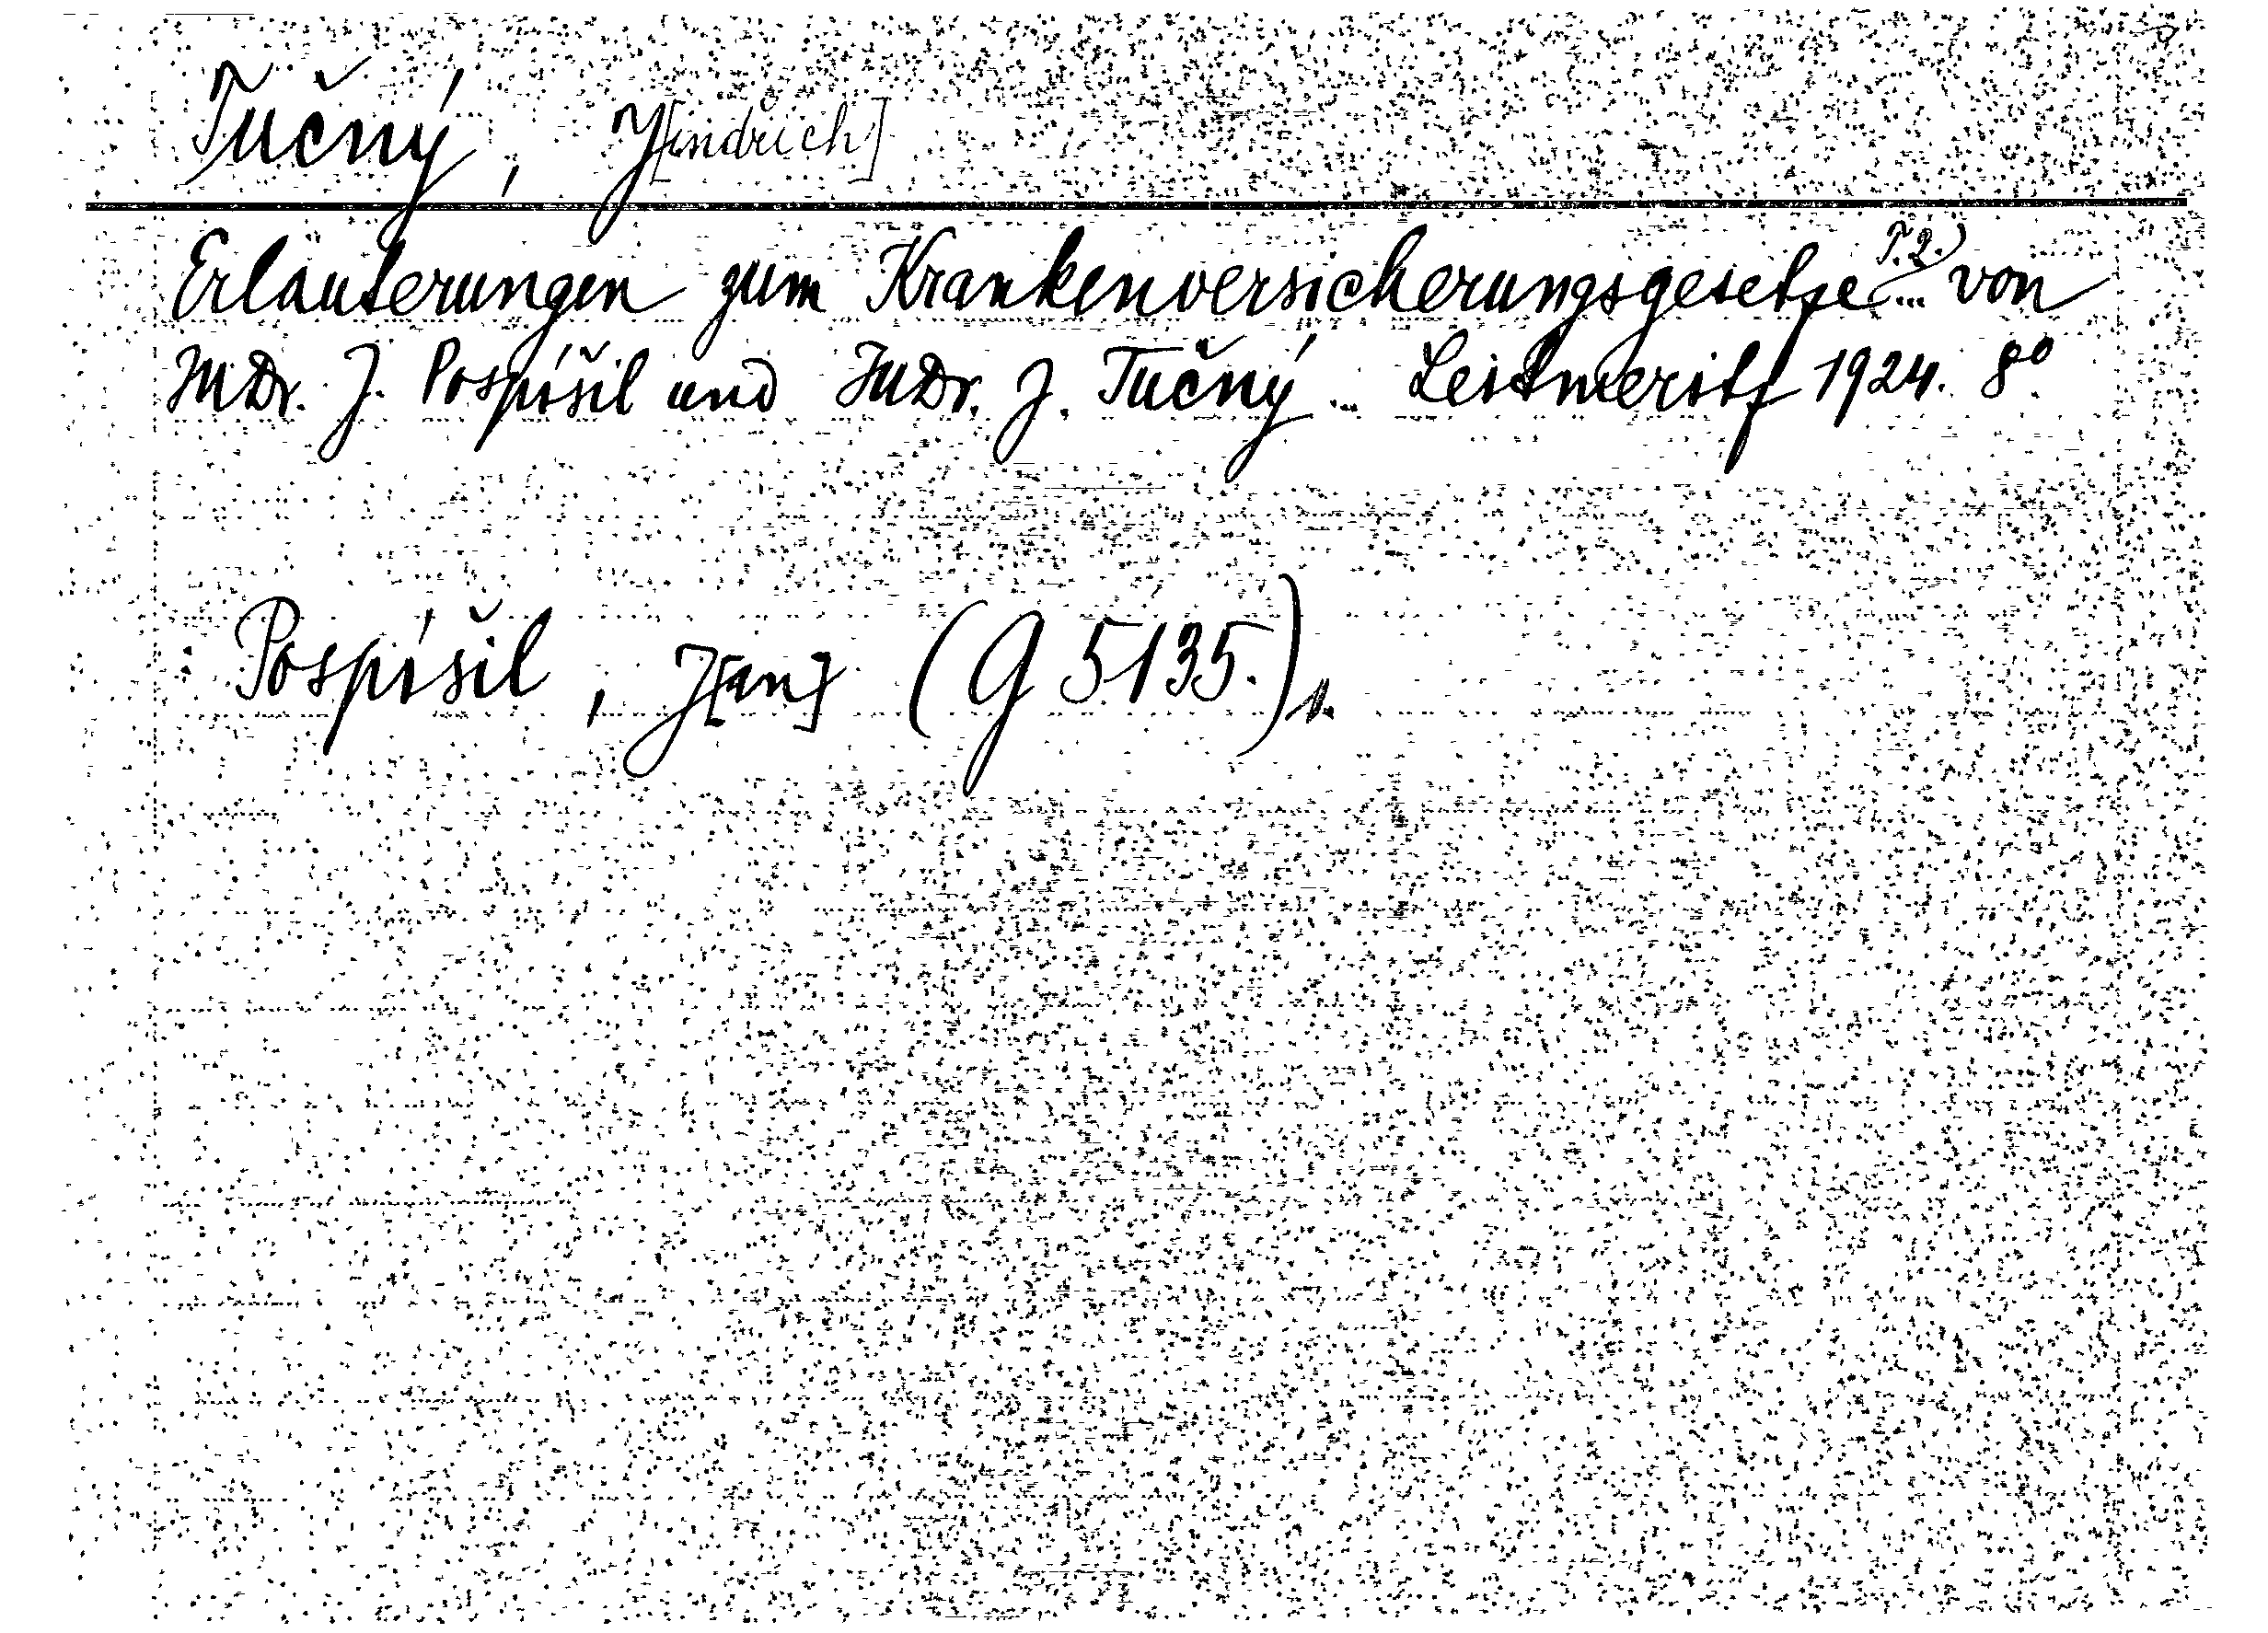 Tučný, J[indřich]
Erläuterungen zum Krankenversicherungsgesetze T. 2. ... von
JUDr. J. Pospíšil und JUDr. J. Tučný ... Leitmeritz 1924. 8°.
Pospíšil, J[an] (G 5135.)